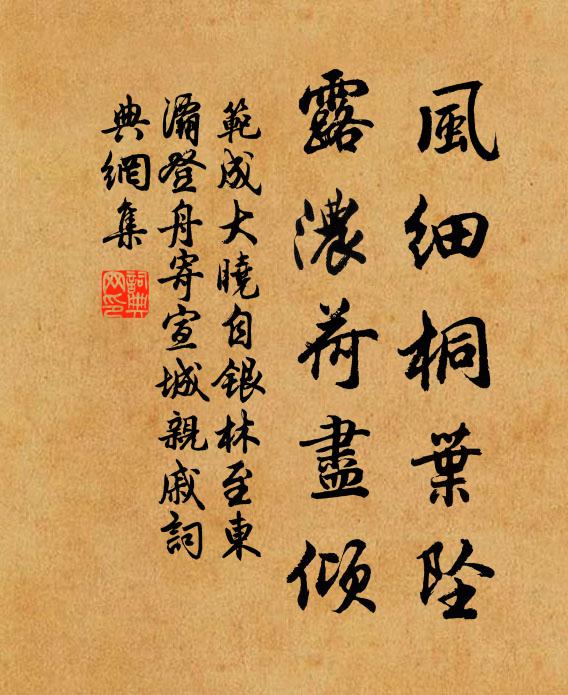 風細桐葉墜
露濃荷盡傾
範成大曉自銀林至東
灞登舟寄宣城親戚詞
典網集
詞典
网印